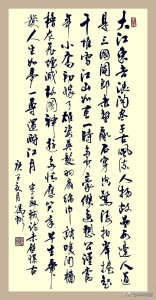 大江東去浪淘盡千古風流人物故壘西邊人道
是三國周郎赤壁亂石穿空驚濤拍岸捲起
千堆雪江山如畫一時多少豪傑遙想公瑾當
年小喬初嫁了雄姿英發羽扇綸巾談笑間檣
櫓灰飛煙滅故國神遊多情應笑我早生華
髮人生如夢一尊還酹江月 宋蘇軾詞赤壁懷古